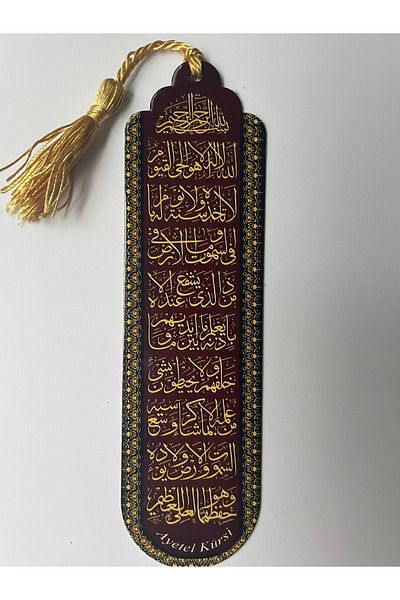 بسم الله الرحمن الرحيم
الله لا إله إلا هو الحي القيوم
لا تأخذه سنة ولا نوم له
ما في السموات وما في الأرض
من ذا الذي يشفع عنده إلا
بإذنه يعلم ما بين أيديهم وما
خلفهم ولا يحيطون بشيء
من علمه إلا بما شاء وسع كرسيه
السموات والأرض ولا يؤده
حفظهما وهو العلي العظيم
Ayetel Kürsi